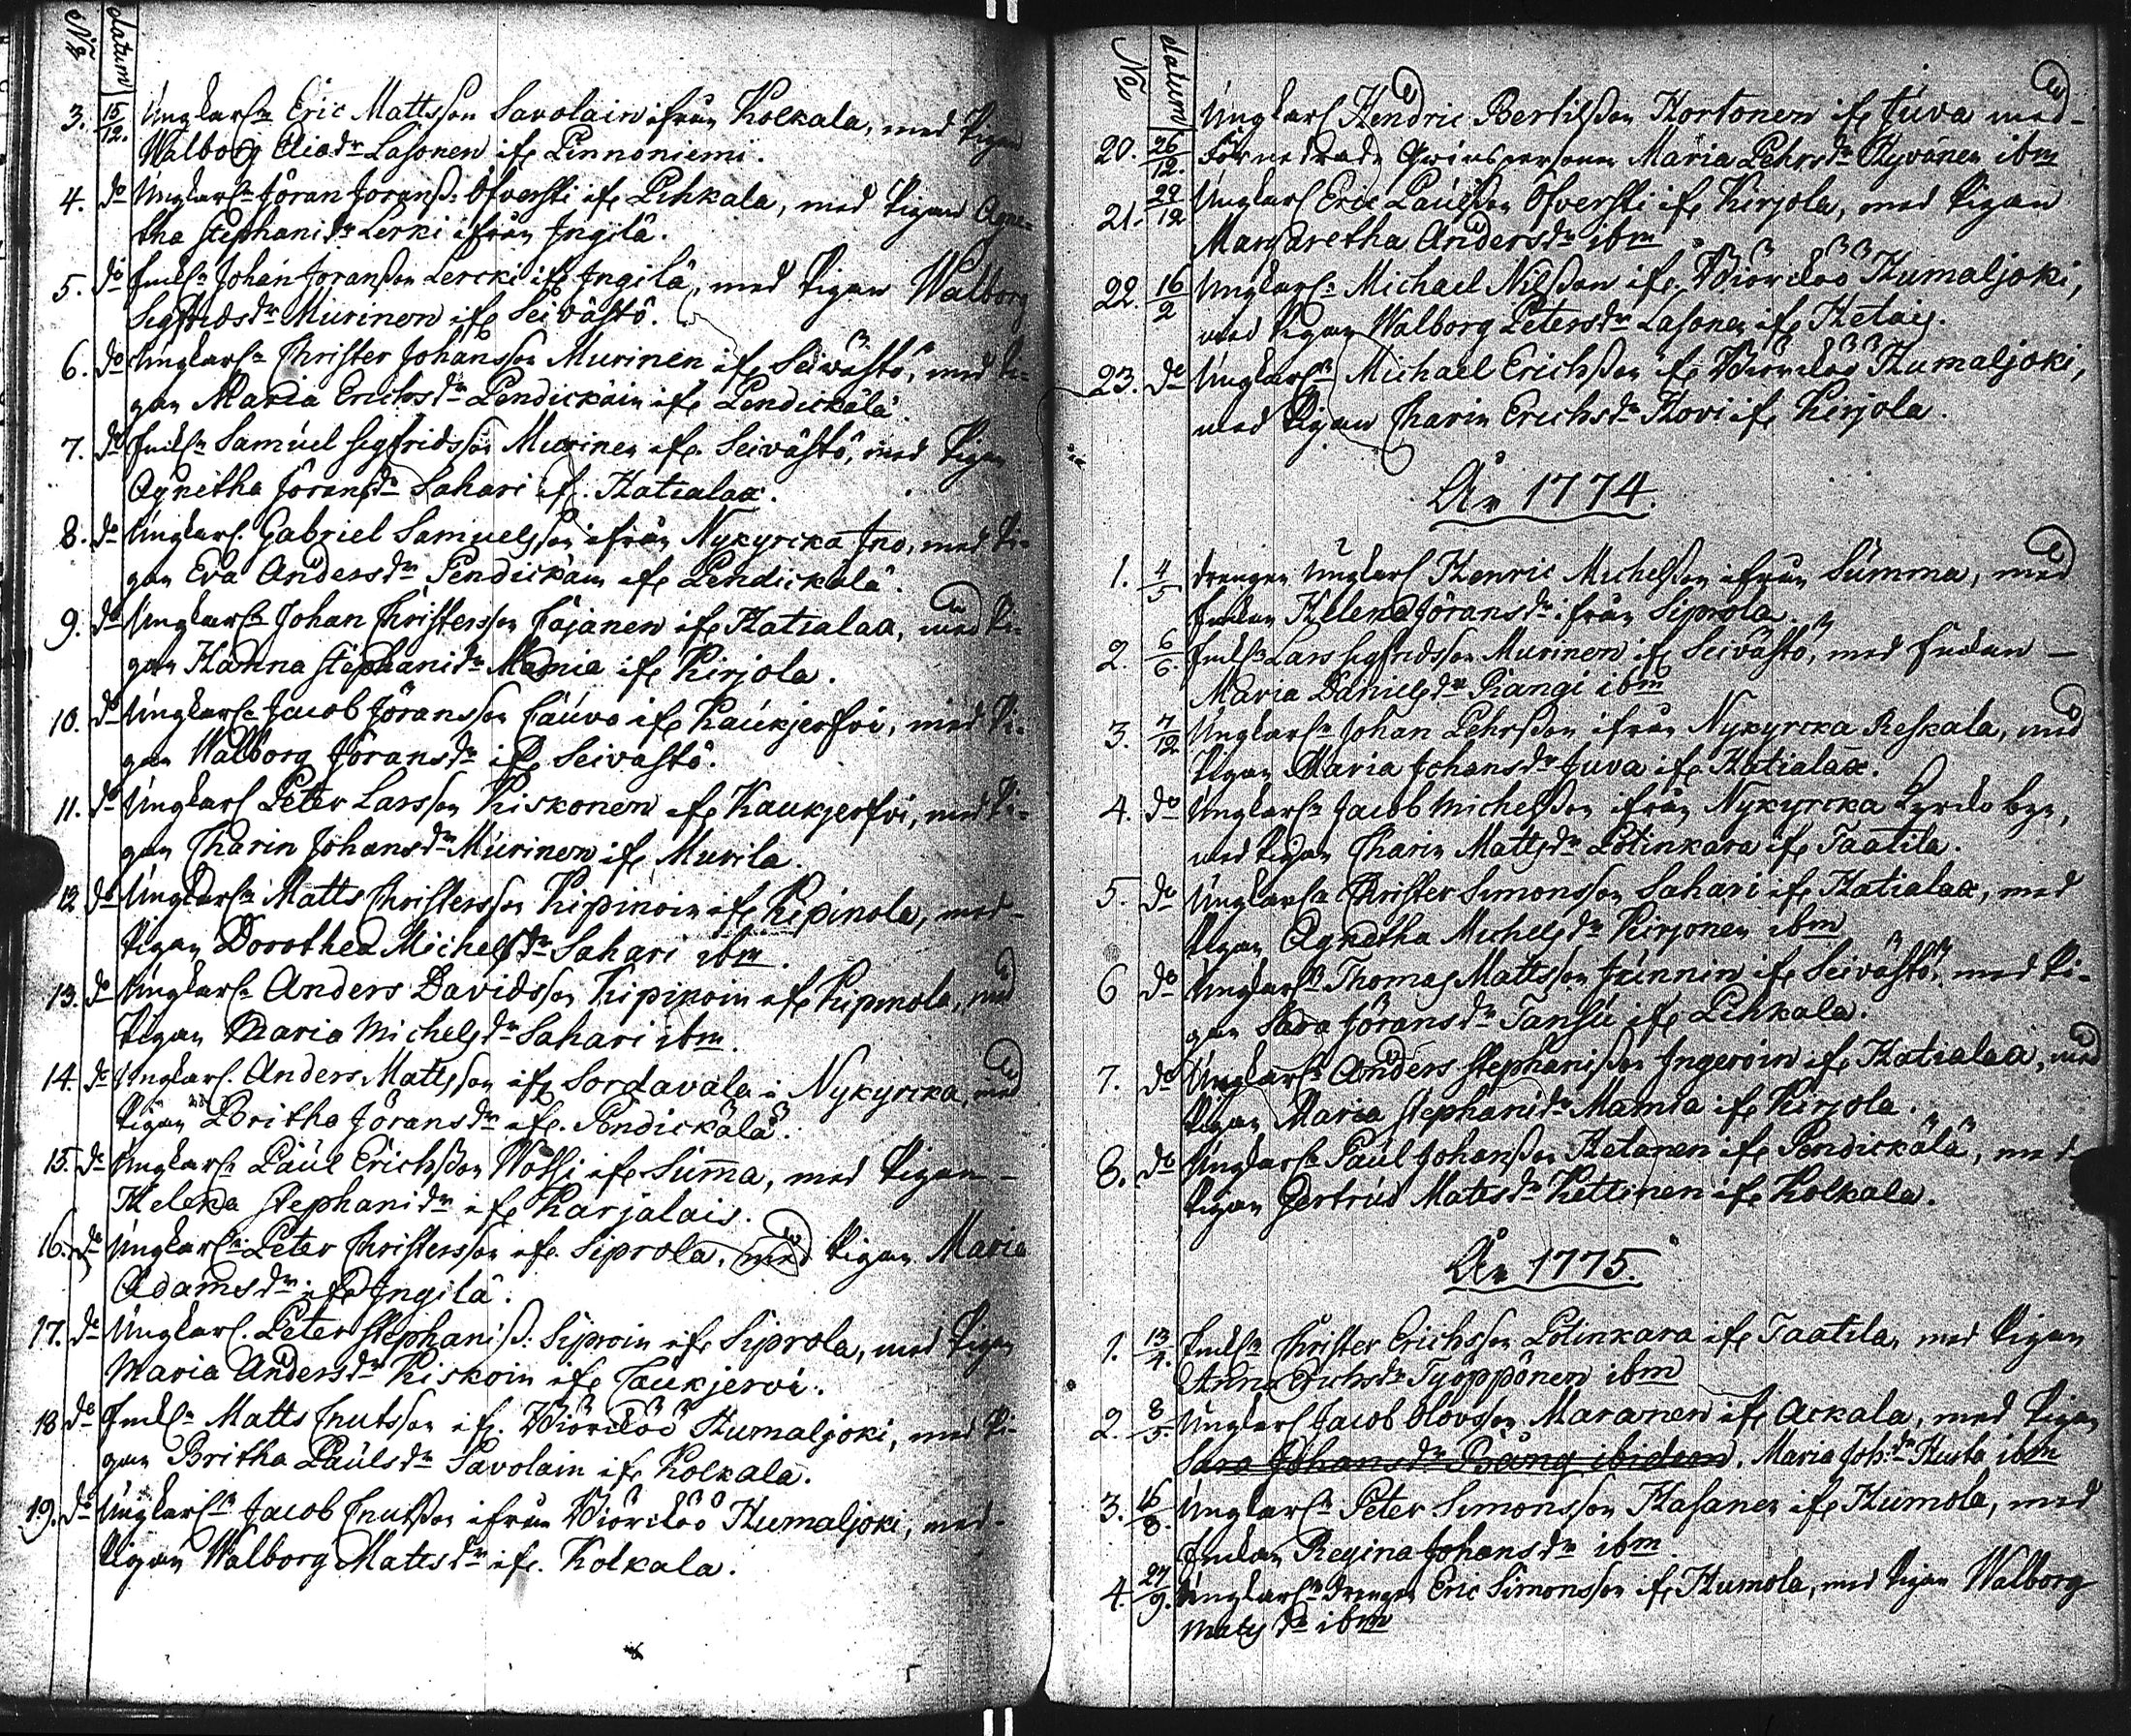 No datum
3. 15/12. Ungkarln Eric Mattsson Savolain ifrån Kolkala, med Pigan
Walborg Eliædr Lasonen ifr Pinnoniemi.
4. do Ungkarln Jöran Joranss: Ofversti ifr Pihkala, med Pigan Agne-
tha Stephanidr Lerki ifrån Ingilä.
5. do Enkln Johan Joransson Lercki ifr Ingilä, med Pigan Walborg
Sigfridsdr Murinen ifr Seivästö.
6. do Ungkarln Christer Johansson Murinen ifr Seivästö, med Pi-
gan Maria Erichsdr Pendickäin ifr Pendickälä.
7. do Enkln Samuel Sigfridsson Murinen ifr Seivästö, med Pigan
Agnetha Joransdr Sahari ifr. Hatialax.
8. do Ungkarl. Gabriel Samuelsson ifrån Nykyrcka Ino, med Pi-
gan Eva Andersdr Pendickäin ifr Pendickälä.
9. do Ungkarln Johan Christersson Cajanen ifr Hatialaa, med Pi-
gan Hanna Stephanidr Mamia ifr Kirjola.
10. do Ungkarln Jacob Jöransson Cauvo ifr Kaukjerfvi, med Pi-
gan Walborg Jöransdr ifr Seivästö.
11. do Ungkarl Peter Larsson Kiskonen ifr Kaukjerfvi, med Pi-
gan Charin Johansdr Murinen ifr Murila.
12 do Ungkarln Matts Christersson Kipinoin ifr Kipinola, med
Pigan Dorothea Michelsdr Sahari ibm.
13. do Ungkarln Anders Davidsson Kipinoin ifr Kipinola, med
Pigan Maria Michelsdr Sahari ibm.
14. do Ungkarl. Anders Mattsson ifr Sordavala i Nykyrcka, med
Pigan Britha Jöransdr ifr. Pendickälä.
15. do Ungkarln Paul Erichsson Wossi ifr Summa, med Pigan
Helena Stephanidr ifr Karjalais.
16. do Ungkarln Peter Christersson ifr Siprola, med Pigan Maria
Adamsdr ifr Ingilä.
17. do Ungkarl. Peter Stephaniss: Siproin ifr Siprola, med Pigan
Maria Andersdr Kiskoin ifr Caukjervi.
18 do Enkln Matts Cnutsson ifr. Biörcköö Humaljoki, med Pi-
gan Britha Paulsdr Savolain ifr Kolkala.
19. do Ungkarln Jacob Cnutsson ifrån Biörcköö Humaljoki, med
Pigan Walborg Mattsdr ifr. Kolkala.
No datum
Ungkarl Hendric Bertilsson Hortonen ifr Juva med
20. 26/12. Förnedrade Qvinspersonen Maria Pehrsdr Hyvänen ibm
21. 29/12 Ungkarl Eric Paulsson Ofversti ifr Kirjola, med Pigan
Margaretha Andersdr ibm
22. 16/2 Ungkarln Michael Nilsson ifr. Biörcköö Humaljoki,
med Pigan Walborg Petersdr Lasonen ifr Hetais.
23. do Ungkarln Michael Erichsson ifr Biörcköö Humaljoki,
med Pigan Charin Erichsdr Hovi ifr Kirjola.
År 1774.
1. 4/5 Drengen Ungkarl Henric Michelsson ifrån Summa, med
Enkan Helena Jöransdr ifrån Siprola.
2. 6/6. Enkln Lars Sigfridsson Murinen ifr Seivästö, med Enkan
Maria Danielsdr Rangi ibm
3. 7/12. Ungkarln Johan Pehrsson ifrån Nykyrcka Reskala, med
Pigan Maria Johansdr Juva ifr Hatialax.
4. do Ungkarln Jacob Michelsson ifrån Nykyrcka Kyrcko byn,
med Pigan Charin Mattsdr Potinkara ifr Taatila.
5. do Ungkarln Christer Simonsson Sahari ifr Hatialax, med
Pigan Agnetha Michelsdr Kirjonen ibm
6 do Ungkarln Thomas Mattsson Junnin ifr Seivästö, med Pi-
gan Sara Jöransdr Tansu ifr Pihkala.
7. do Ungkarln Anders Stephanisson Ingeroin ifr Hatialaa, med
Pigan Maria Stephanidr Mamia ifr Kirjola.
8. do Ungkarln Paul Johansson Hetanen ifr Pendickälä, med
Pigan Gertrud Mattsdr Kettinen ifr Kolkala.
År 1775.
1. 13/4. Enkln Christer Erichsson Potinkara ifr Taatila, med Pigan
Anna Erichsdr Tyopponen ibm
2. 8/5. Ungkarl Jacob Olovsson Maranen ifr Ackala, med Pigan
Sara Johansdr Bång ibidem. Maria Joh:dr Hurla ibm
3. 16/8. Ungkarln Peter Simonsson Hasanen ifr Humola, med
Enkan Regina Johansdr ibm
4. 27/9. Ungkarln Drengen Eric Simonsson ifr Humola, med Pigan Walborg
Mattsdr ibm